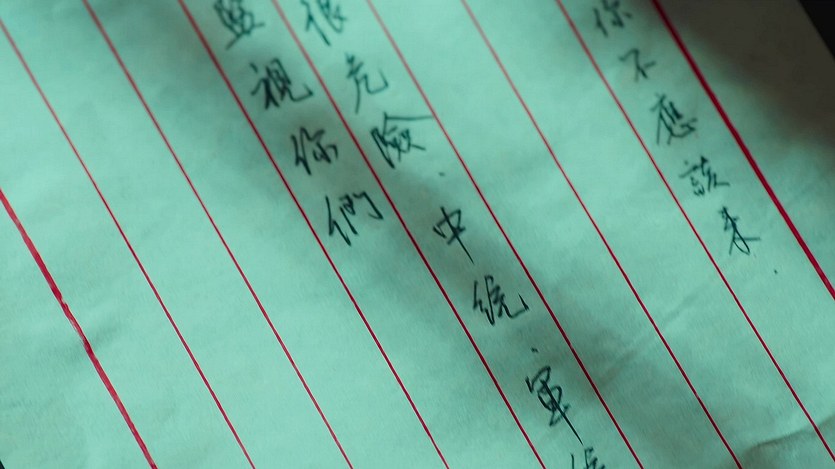 你不應該来.
很危險.中統.軍統
監視你們